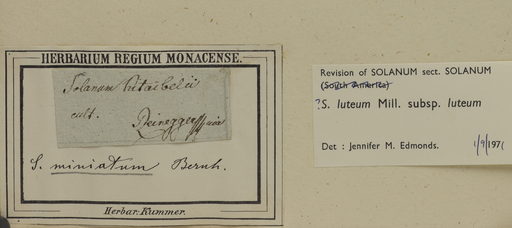 HERBARIUM REGIUM MONACENSE.
Solanum Kitaibelii
cult.
S. miniatum Bernh.
Herbar. Kummer.
Revision of SOLANUM sect. SOLANUM
(South America)
?S. luteum Mill. subsp. luteum
Det : Jennifer M. Edmonds.
1/9/197(